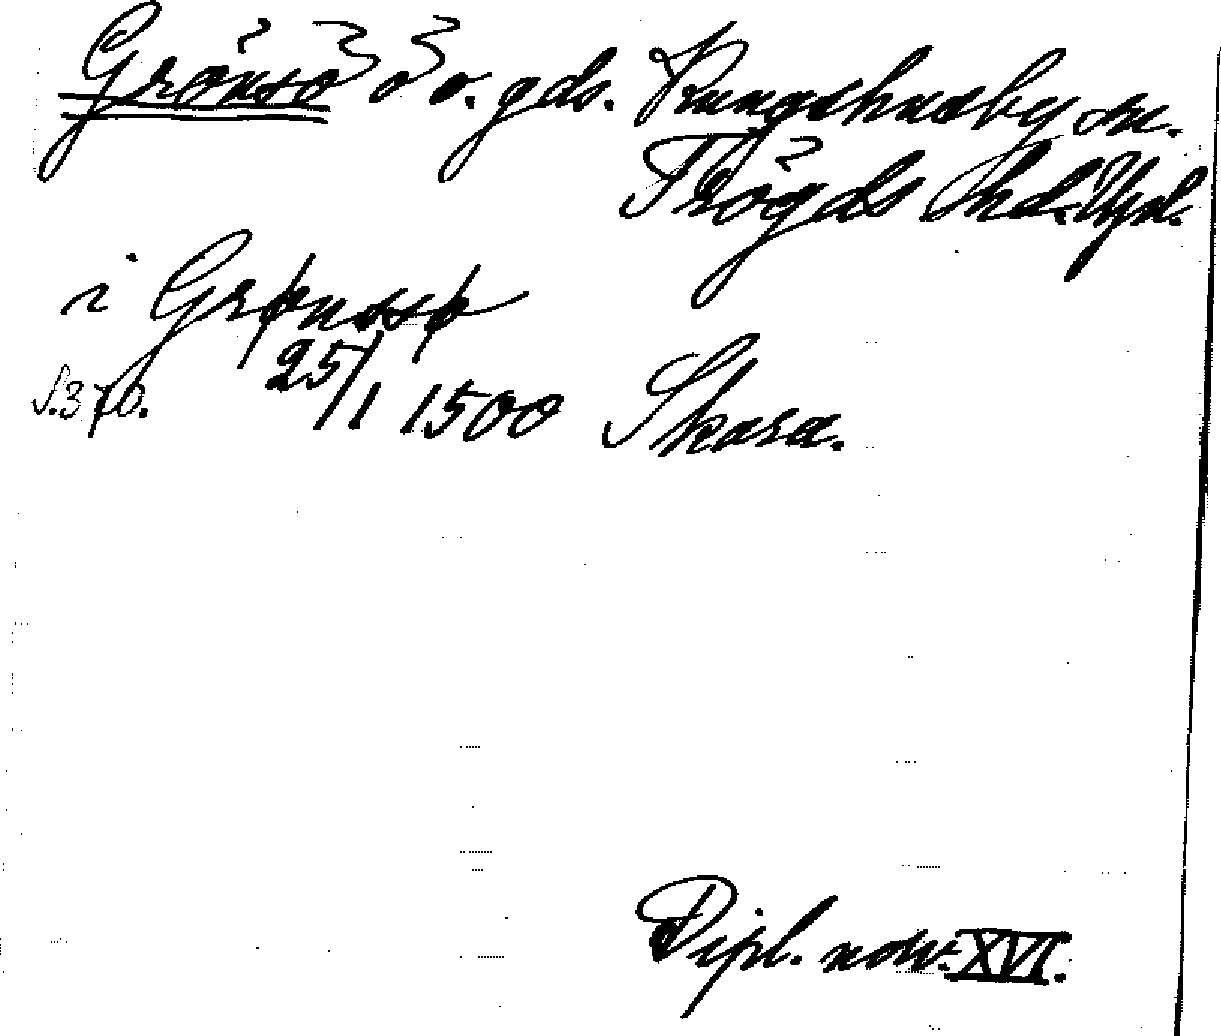 Grönsö ö o. gds. Kungshusby sn.
Trögds hd. Upl.
i Grønssø
s. 370. 25/1 1500 Skara.
Dipl. norv. XVI.